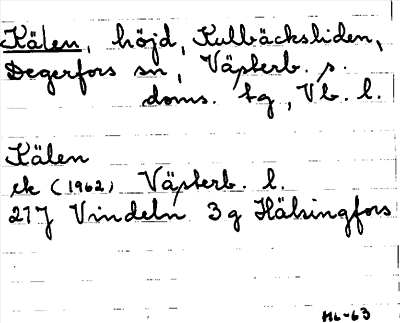 Kälen, höjd, Kulbäcksliden,
Degerfors sn, Västerb. s.
doms. tg, Vb. l.
Kälen
ek (1962) Västerb. l.
21J Vindeln 3g Hälsingfors
HL-63